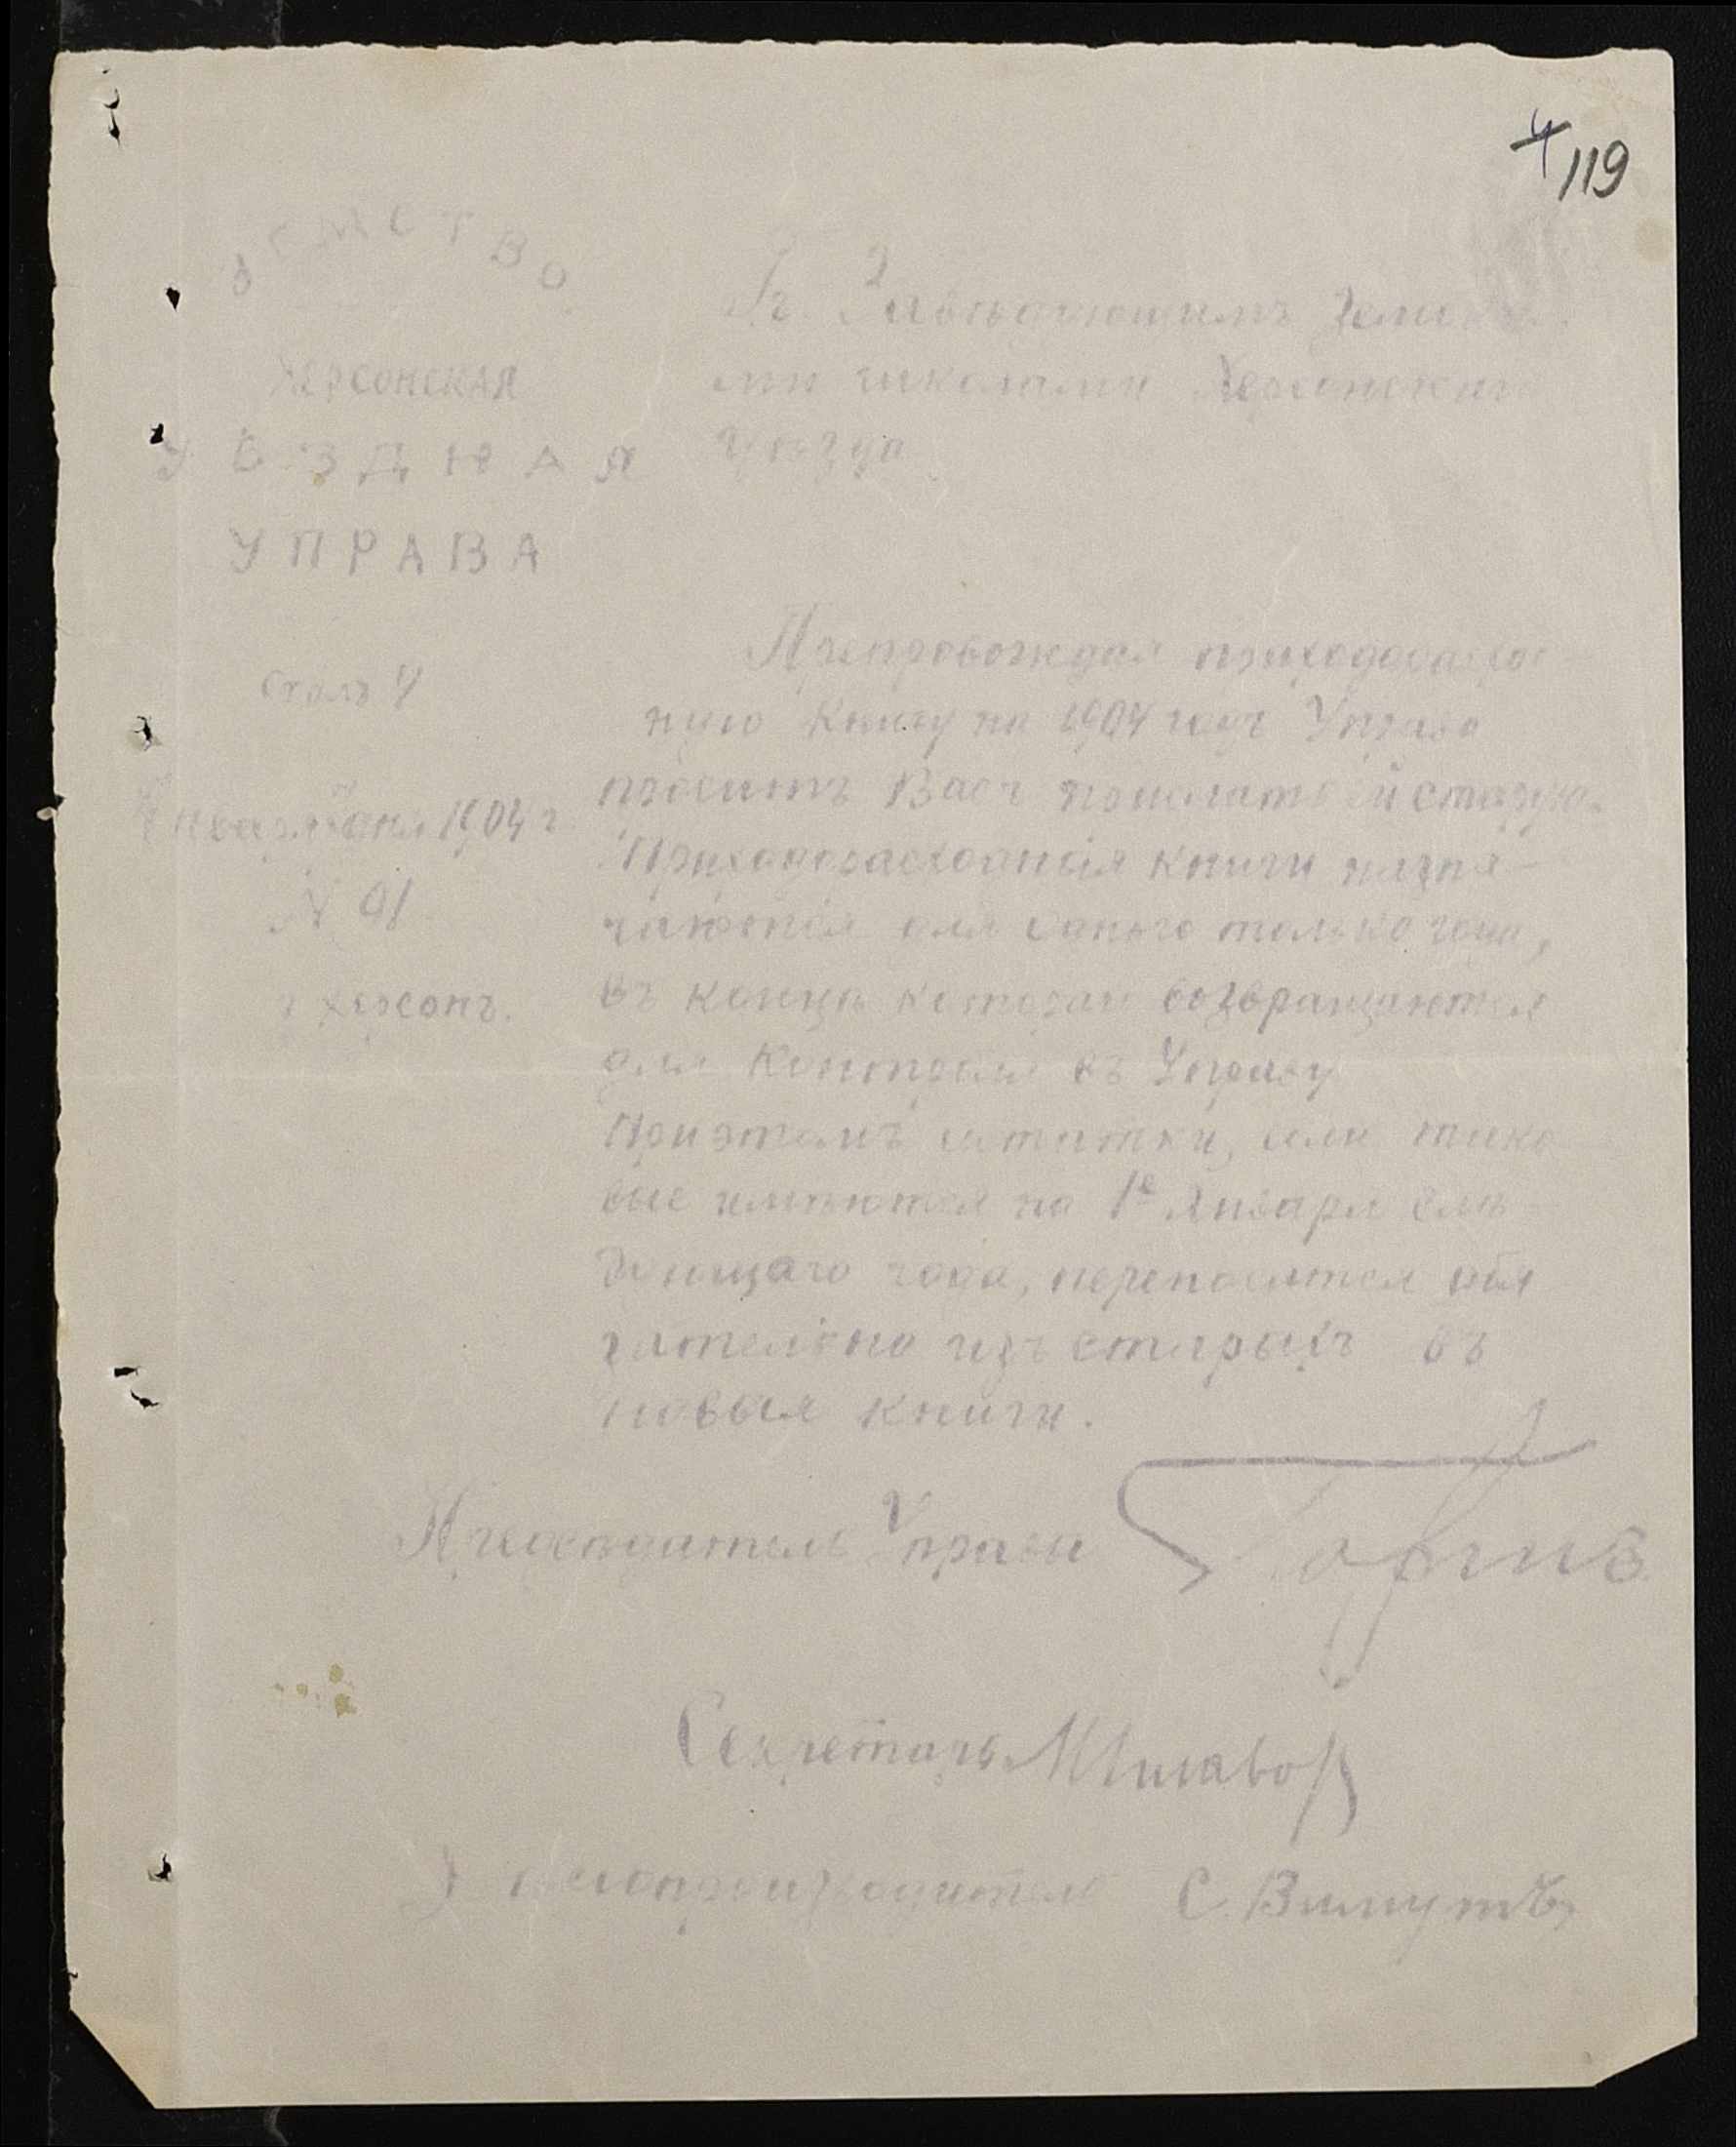 4 119
ЗЕМСТВО.
ХЕРСОНСКАЯ
УѢЗДНАЯ
УПРАВА
Столъ 4
Января 1904 г.
N 91
г. Херсонъ.
Гг. Завѣдующимъ Земс
ми школами Херсонскаго
уѣзда
Препровождая приходорасход-
ную Книгу на 1904 годъ Управа
проситъ Васъ прислать ей старую.
Приходорасходныя книги назна-
чаются для одного только года,
въ концѣ котораго возвращаются
для Контроля въ Управу
При этомъ остатки, если тако
вые имѣются на 1е Января слѣ-
дующаго года, переносятся обя
зательно изъ старыхъ въ
новыя книги.
Предсѣдатель Управы
Секретарь
Дѣлопроизводитель С.